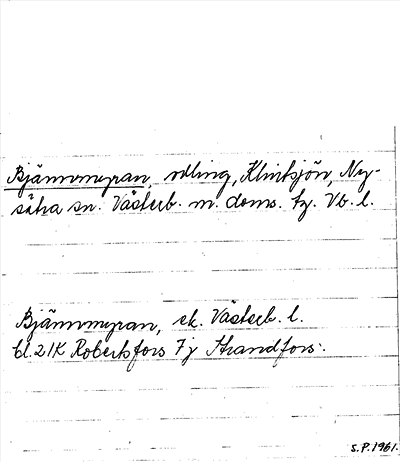 Bjännmyran, odling, Klintsjön, Ny-
sätra sn. Västerb. m. doms. tg. Vb. l.
Bjännmyran, ek. Västerb. l.
bl. 21K Robertsfors 7j Strandfors.
S.P. 1961.